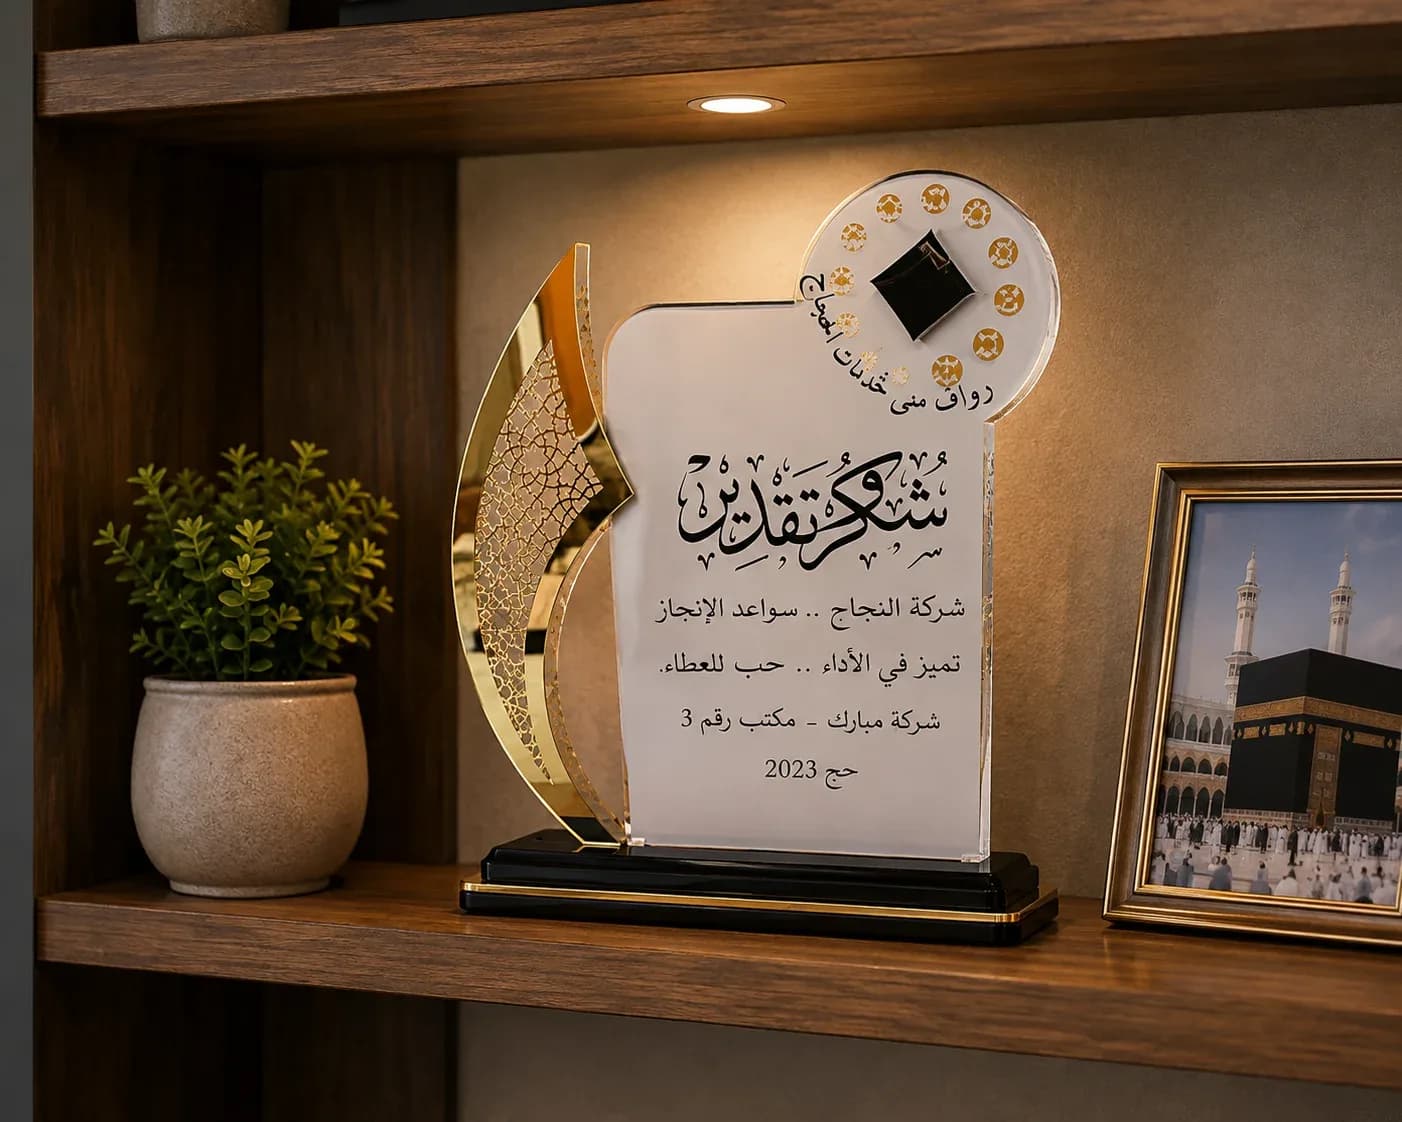 رواق منى خدمات الحجاج
شكر وتقدير
شركة النجاح .. سواعد الإنجاز
تميز في الأداء .. حب للعطاء.
شركة مبارك - مكتب رقم 3
حج 2023